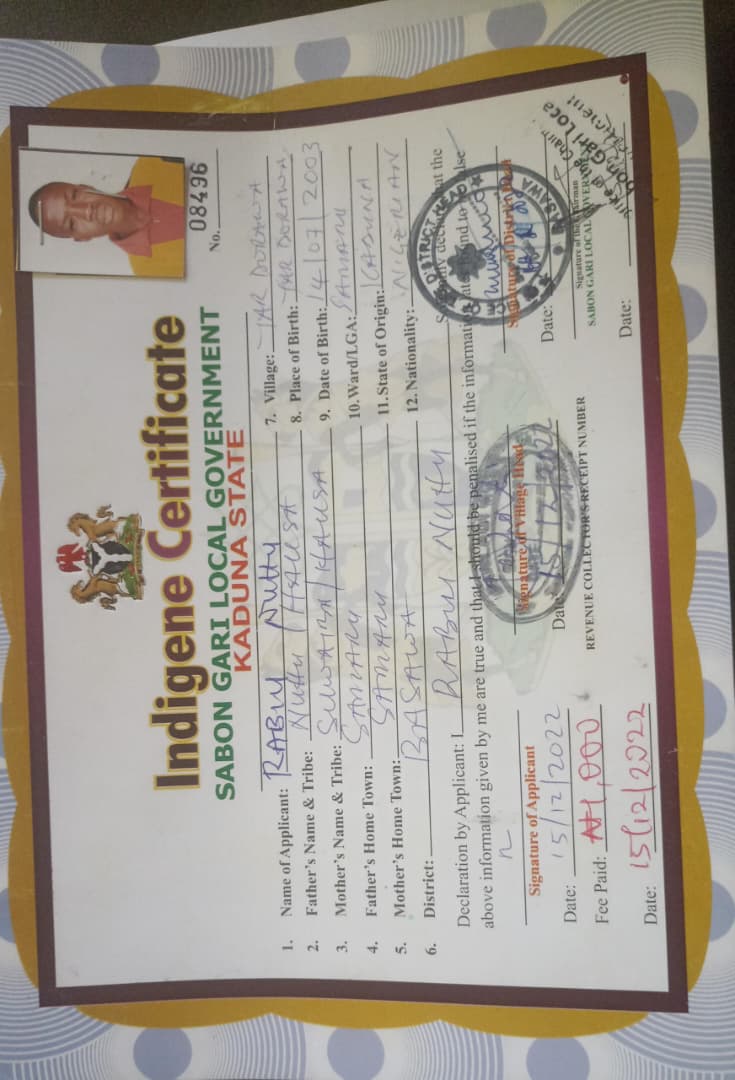 Indigene Certificate
SABON GARI LOCAL GOVERNMENT
KADUNA STATE
No. 08496
1. Name of Applicant: RABIU NUHU
2. Father's Name & Tribe: NUHU / HAUSA
3. Mother's Name & Tribe: / HAUSA
4. Father's Home Town: SAMARU
5. Mother's Home Town: SAMARU
6. District: BASAWA
7. Village: DORAWA
8. Place of Birth: DORAWA
9. Date of Birth: 14/07/2003
10. Ward/LGA: SAMARU
11. State of Origin: KADUNA
12. Nationality: NIGERIAN
Declaration by Applicant: I RABIU NUHU that the
above information given by me are true and that I should be penalised if the information
Signature of Applicant
Date: 15/12/2022
Signature of Village Head
Date: 15/12/2022
Signature of District Head
DISTRICT HEAD
BASAWA
Date:
Fee Paid: ₦1,000
REVENUE COLLECTOR'S RECEIPT NUMBER
Signature of the Chairman
SABON GARI LOCAL GOVERNMENT
Date: 15/12/2022
Date: